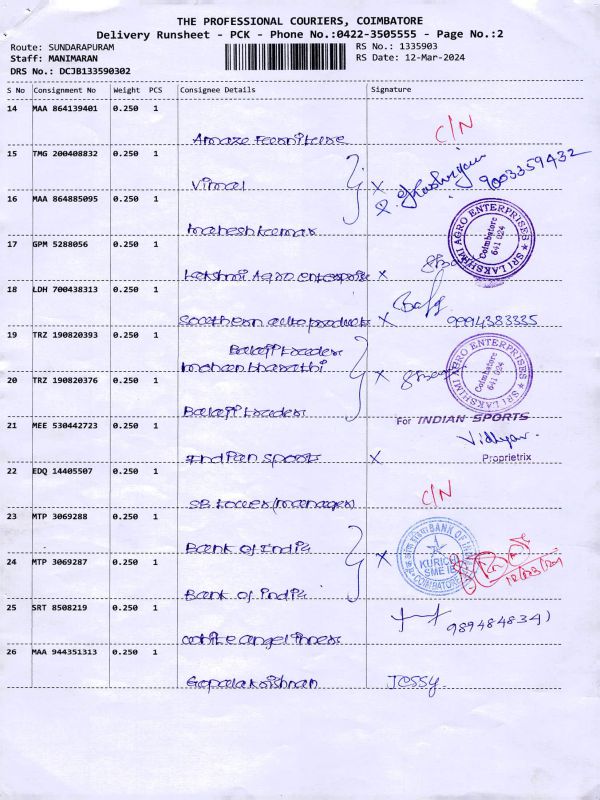 THE PROFESSIONAL COURIERS, COIMBATORE
Delivery Runsheet - PCK - Phone No.:0422-3505555 - Page No.:2
Route: SUNDARAPURAM
Staff: MANIMARAN
DRS No.: DCJB133590302
RS No.: 1335903
RS Date: 12-Mar-2024
S No Consignment No Weight PCS Consignee Details Signature
14 MAA 864139401 0.250 1
Amaze Furniture C/N
15 TMG 200408832 0.250 1
Vimal x 9003359432
16 MAA 864885095 0.250 1
Maheshkumar
SRI LAKSHMI AGRO ENTERPRISES ★ Coimbatore 641 024
17 GPM 5288056 0.250 1
Lakshmi Agro enterprise x
18 LDH 700438313 0.250 1
Southern auto products x 9994383335
19 TRZ 190820393 0.250 1
Balaji traders
mohan bharathi
SRI LAKSHMI AGRO ENTERPRISES ★ Coimbatore 641 024
20 TRZ 190820376 0.250 1
Balaji traders
For INDIAN SPORTS
21 MEE 530442723 0.250 1
Vidhya.
Indian sport x
Proprietrix
22 EDQ 14405507 0.250 1
SB tower (manager) C/N
23 MTP 3069288 0.250 1
Bank of India x
BANK OF INDIA KURICHI SME COIMBATORE
24 MTP 3069287 0.250 1
Bank of India
25 SRT 8508219 0.250 1
989484834)
white angel
26 MAA 944351313 0.250 1
Gopalakrishnan Jessy.